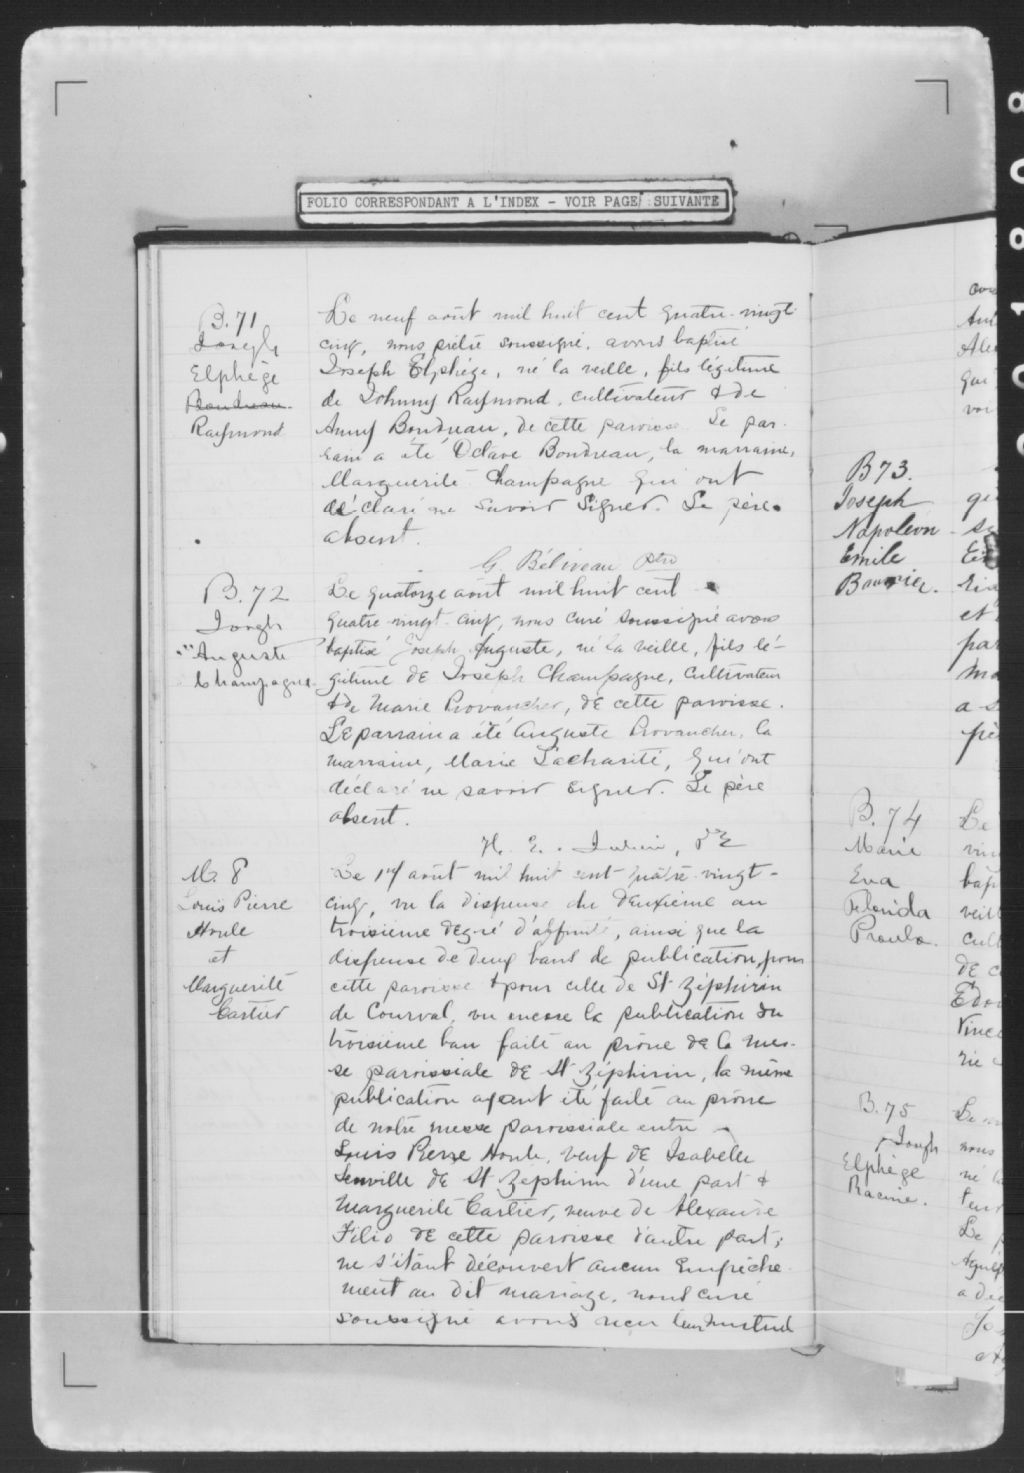 FOLIO CORRESPONDANT A L'INDEX - VOIR PAGE SUIVANTE
B. 71
Joseph
Elphège
Boudreau
Raymond
Le neuf août mil huit cent quatre-vingt
cinq, nous prêtre soussigné, avons baptisé
Joseph Elphège, né la veille, fils légitime
de Johnny Raymond, cultivateur & de
Anny Boudreau, de cette paroisse. Le par-
rain a été Octave Boudreau, la marraine,
Marguerite Champagne qui ont
déclaré ne savoir signer. Le père
absent.
G. Béliveau Ptre
B. 72
Joseph
Auguste
Champagne
Le quatorze août mil huit cent
quatre-vingt-cinq, nous curé soussigné avons
baptisé Joseph Auguste, né la veille, fils lé-
gitime de Joseph Champagne, cultivateur
& de Marie Provancher, de cette paroisse.
Le parrain a été Auguste Provancher, la
marraine, Marie Lacharité, qui ont
déclaré ne savoir signer. Le père
absent.
H. E. Julien, Ptre
M. 8
Louis Pierre
Houle
et
Marguerite
Cartier
Le août mil huit cent quatre-vingt-
cinq, vu la dispense du deuxième au
troisième degré d'affinité, ainsi que la
dispense de deux bans de publication, pour
cette paroisse & pour celle de St Zéphirin
de Courval, vu encore la publication du
troisième ban faite au prône de la mes-
se paroissiale de St Zéphirin, la même
publication ayant été faite au prône
de notre messe paroissiale entre
Louis Pierre Houle, veuf de Isabelle
Jenville de St Zéphirin d'une part &
Marguerite Cartier, veuve de Alexandre
Filio de cette paroisse d'autre part;
ne s'étant découvert aucun empêche-
ment au dit mariage, nous curé
soussigné avons reçu leur mutuel
B 73.
Joseph
Napoléon
Emile
B. 74
Marie
Eva
Florida
Proulx.
B. 75
Joseph
Elphège
Racine.